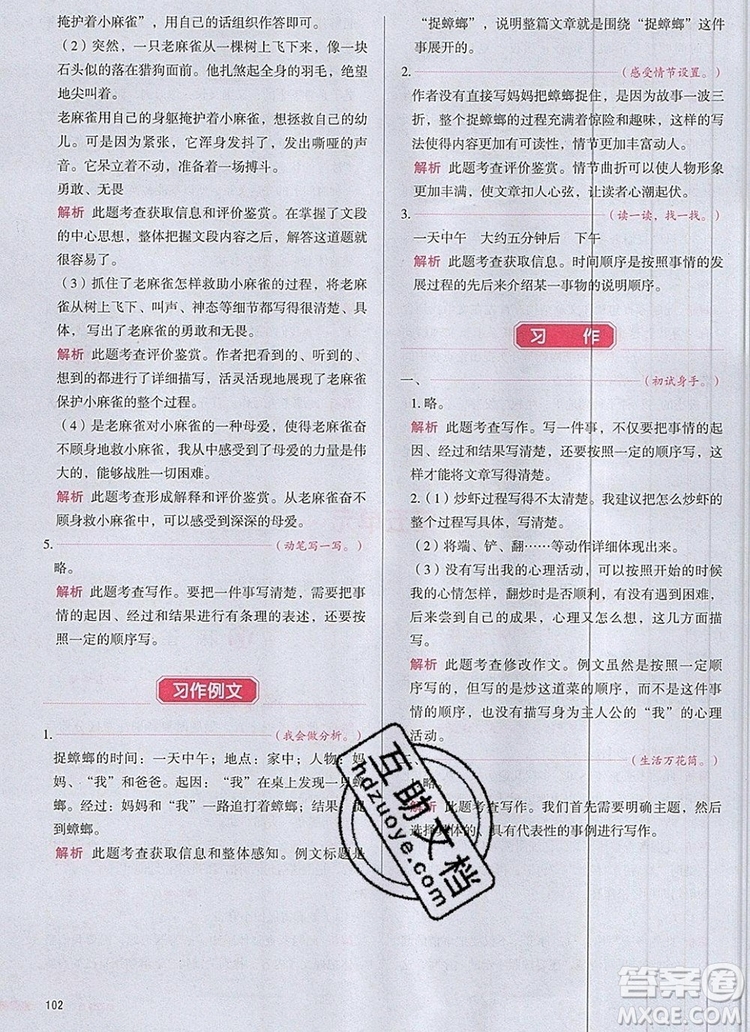 掩护着小麻雀”，用自己的话组织作答即可。
（2）突然，一只老麻雀从一棵树上飞下来，像一块
石头似的落在猎狗面前。他扎煞起全身的羽毛，绝望
地尖叫着。
老麻雀用自己的身躯掩护着小麻雀，想拯救自己的幼
儿。可是因为紧张，它浑身发抖了，发出嘶哑的声
音。它呆立着不动，准备着一场搏斗。
勇敢、无畏
解析 此题考查获取信息和评价鉴赏。在掌握了文段
的中心思想，整体把握文段内容后，解答这道题就很
容易了。
（3）抓住了老麻雀怎样救助小麻雀的过程，将老麻
雀从树上飞下、叫声、神态等细节描写得很清楚、具
体，写出了老麻雀的勇敢和无畏。
解析 此题考查评价鉴赏。作者把看到的、听到的、
想到的都进行了详细描写，活灵活现地展示了老麻雀
保护小麻雀的整个过程。
（4）是老麻雀对小麻雀的一种母爱，使得老麻雀奋
不顾身地救小麻雀，我从中感受到了母爱的力量是伟
大的，能够战胜一切困难。
解析 此题考查形成解释和评价鉴赏。从老麻雀奋不
顾身救小麻雀中，可以感受到深深的母爱。
5.（动笔写一写。）
略。
解析 此题考查写作。要把一件事写清楚，需要把事
情的起因、经过和结果进行有条理的表述，还要按照
一定的顺序写。
习作例文
1.（我会做分析。）
捉蟑螂的时间：一天中午；地点：家中；人物：妈
妈、“我”和爸爸。起因：“我”在桌上发现了一只蟑
螂。经过：妈妈和“我”一路追打着蟑螂；结果：捉
住蟑螂。
解析 此题考查获取信息和整体感知。例文标题是
102
“捉蟑螂”，说明整篇文章就是围绕“捉蟑螂”这件
事展开的。
2.（感受情节设置。）
作者没有直接写妈妈把蟑螂捉住，是因为故事一波三
折，整个捉蟑螂的过程充满着惊险和趣味，这样的写
法使文章更加有可读性，情节更加丰富动人。
解析 此题考查评价鉴赏。情节曲折可以使人物形象
更加丰满，使文章扣人心弦，让读者心潮起伏。
3.（读一读，找一找。）
一天中午 大约五分钟后 下午
解析 此题考查获取信息。时间顺序是按照事情的发
展过程的先后来介绍某一事物的说明顺序。
习 作
一、（初试身手。）
1. 略。
解析 此题考查写作。写一件事，不仅要把事情的起
因、经过和结果写清楚，还要按照一定的顺序写，这
样才能将文章写得清楚、具体。
2.（1）炒虾过程写得不太清楚。我建议把炒虾的整
个过程写具体，写生动。
（2）将端、铲、翻……等动作详细体现出来。
（3）没有写出我的心理活动，我建议把做菜的时候
我是怎么想的，翻炒时是否顺利，有没有遇到困难，
看到自己的成果，心理又怎么想，这么描写会更加
生动。
解析 此题考查修改作文。例文虽然是写一件事，但
是没有把怎么炒这道菜的过程写清楚，把这件事情写
生动具体，也没有描写身为主人公的“我”的心理
活动。
二、（生活万花筒。）
略。
解析 此题考查写作。我们首先需要明确主题，然后
选择具体的、具有代表性的事例进行写作。
互助文档
hdzuoye.com
答案圈
MXQE.COM